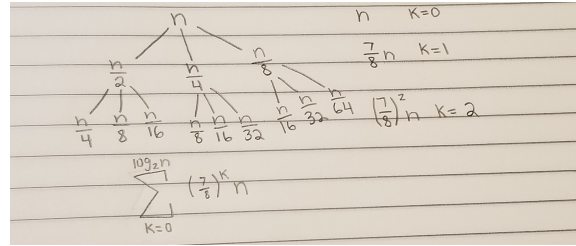 n n K=0
n/2 n/4 n/8 7/8 n K=1
n/4 n/8 n/16 n/8 n/16 n/32 n/16 n/32 n/64 (7/8)² n K=2
log₂n
∑ (7/8)ᴷ n
K=0